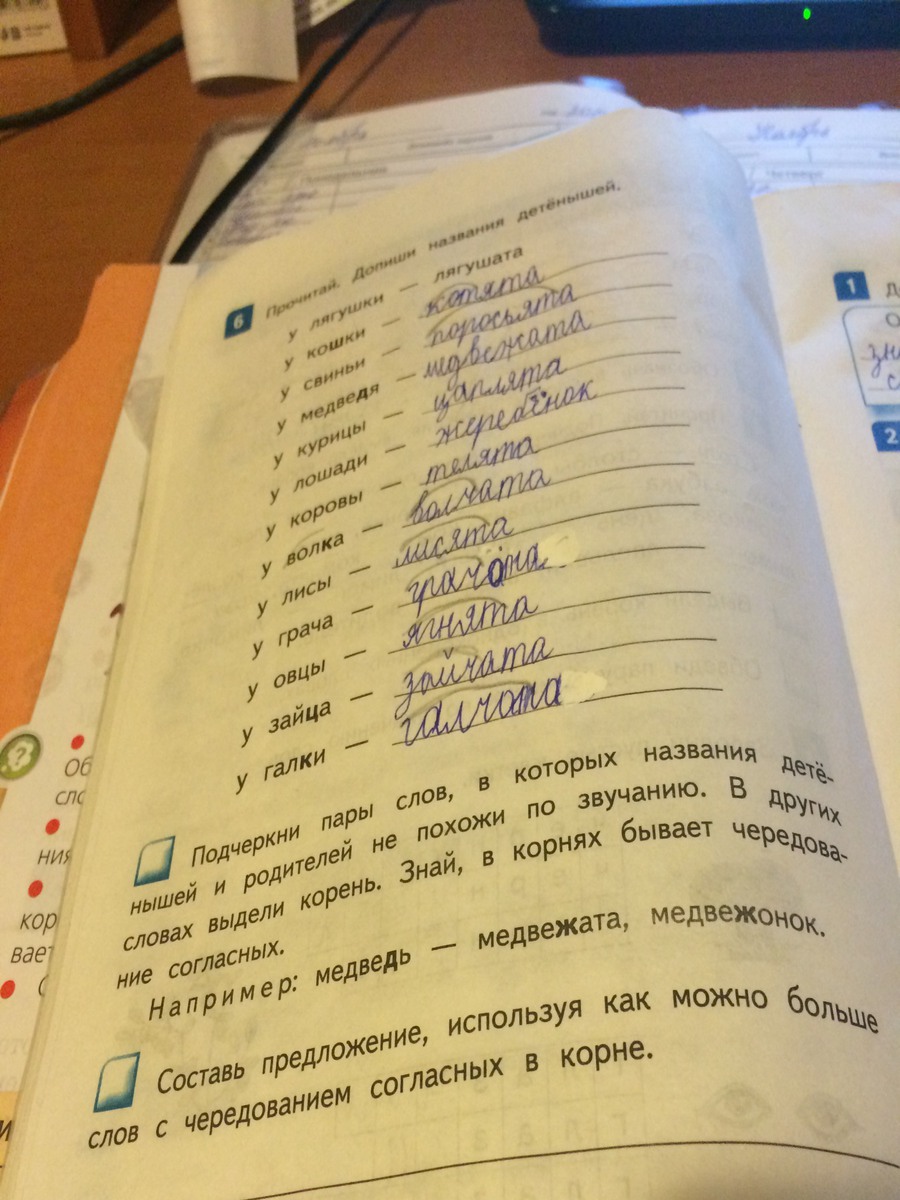 6 Прочитай. Допиши названия детёнышей.
у лягушки — лягушата
у кошки — котята
у свиньи — поросьята
у медведя — медвежата
у курицы — цаплята
у лошади — жеребёнок
у коровы — телята
у волка — волчата
у лисы — лисята
у грача — грачата
у овцы — ягнята
у зайца — зайчата
у галки — галчата
Подчеркни пары слов, в которых названия детё-
нышей и родителей не похожи по звучанию. В других
словах выдели корень. Знай, в корнях бывает чередова-
ние согласных.
Например: медведь — медвежата, медвежонок.
Составь предложение, используя как можно больше
слов с чередованием согласных в корне.
?
Об
сло
ния
кор
вает
1
2